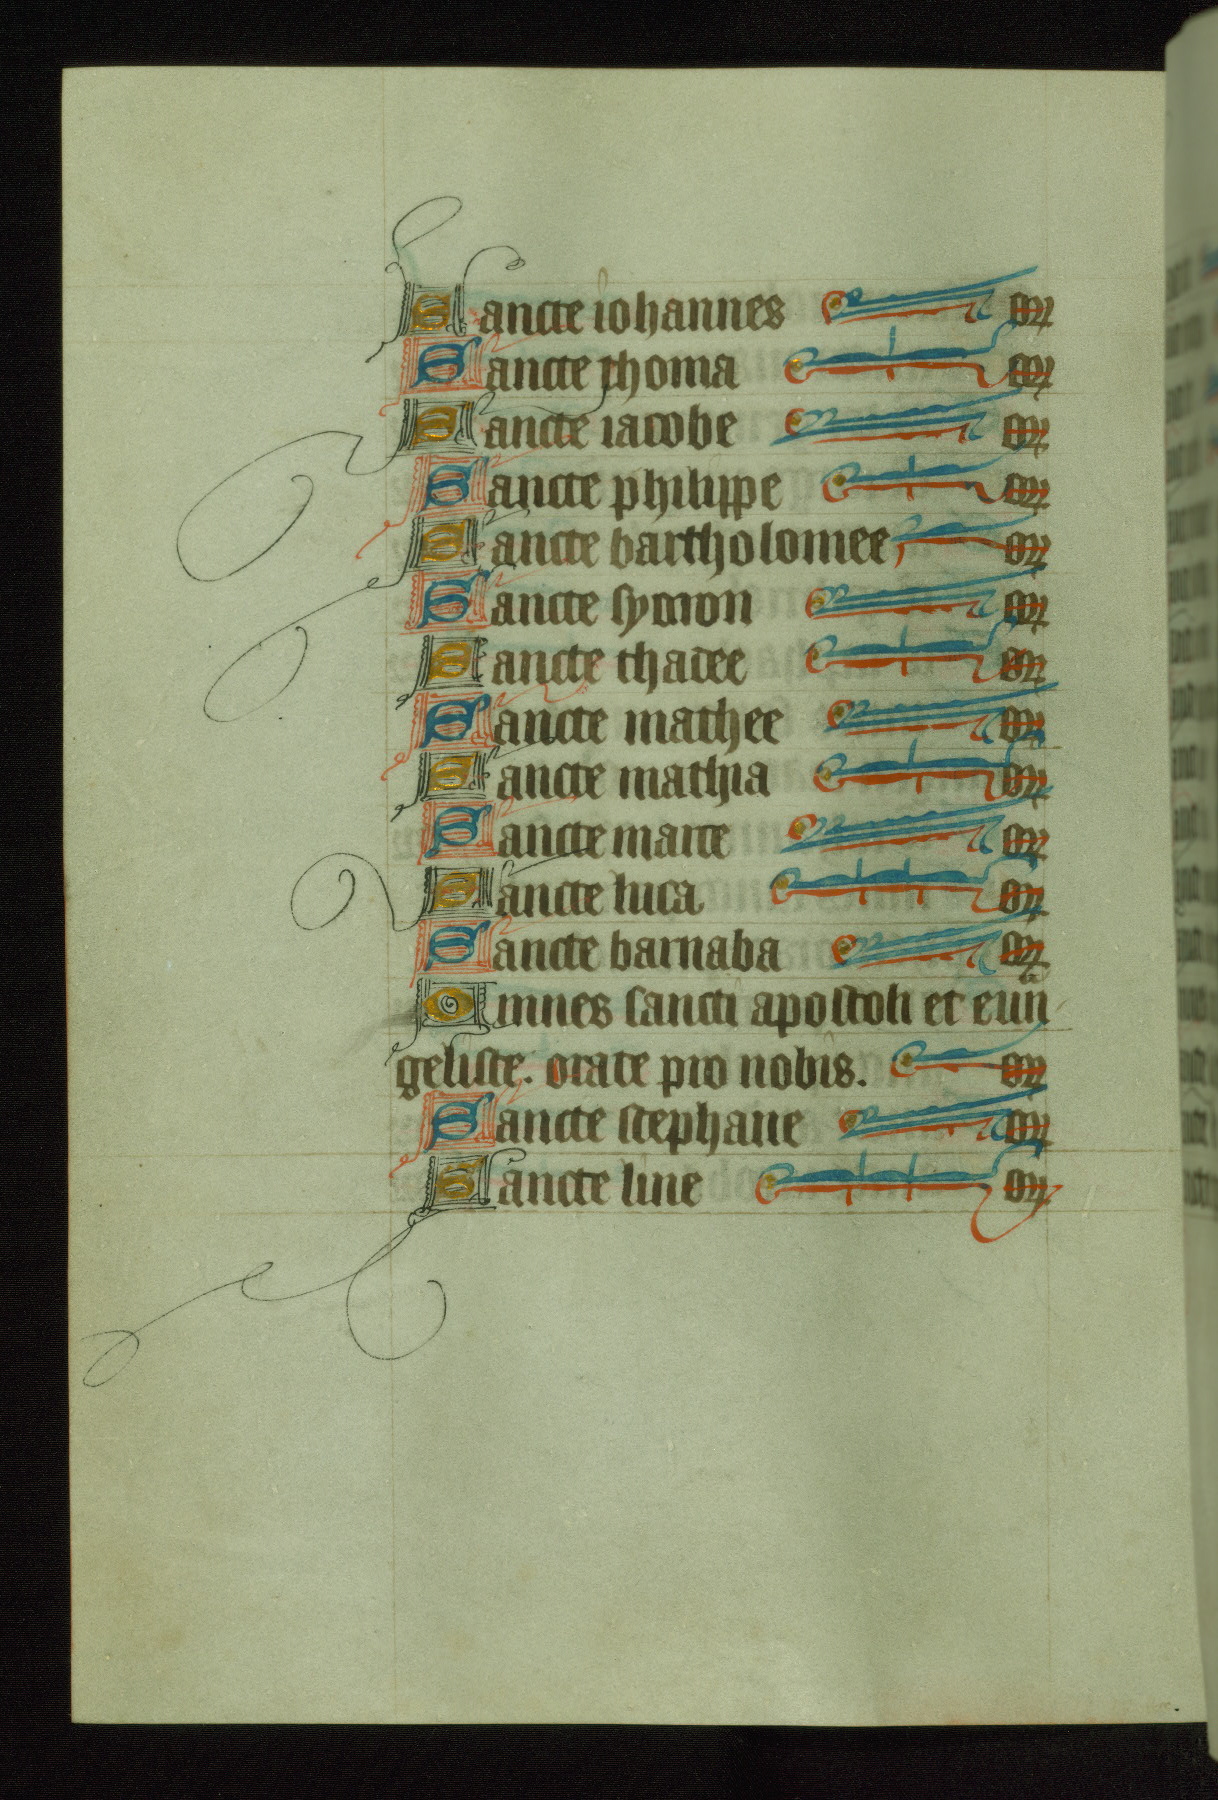 Sancte iohannes or
Sancte thoma or
Sancte iacobe or
Sancte philippe or
Sancte bartholomee or
Sancte symon or
Sancte thadee or
Sancte mathee or
Sancte mathia or
Sancte marce or
Sancte luca or
Sancte barnaba or
Omnes sancti apostoli et euan
geliste. orate pro nobis. or
Sancte stephane or
Sancte line or